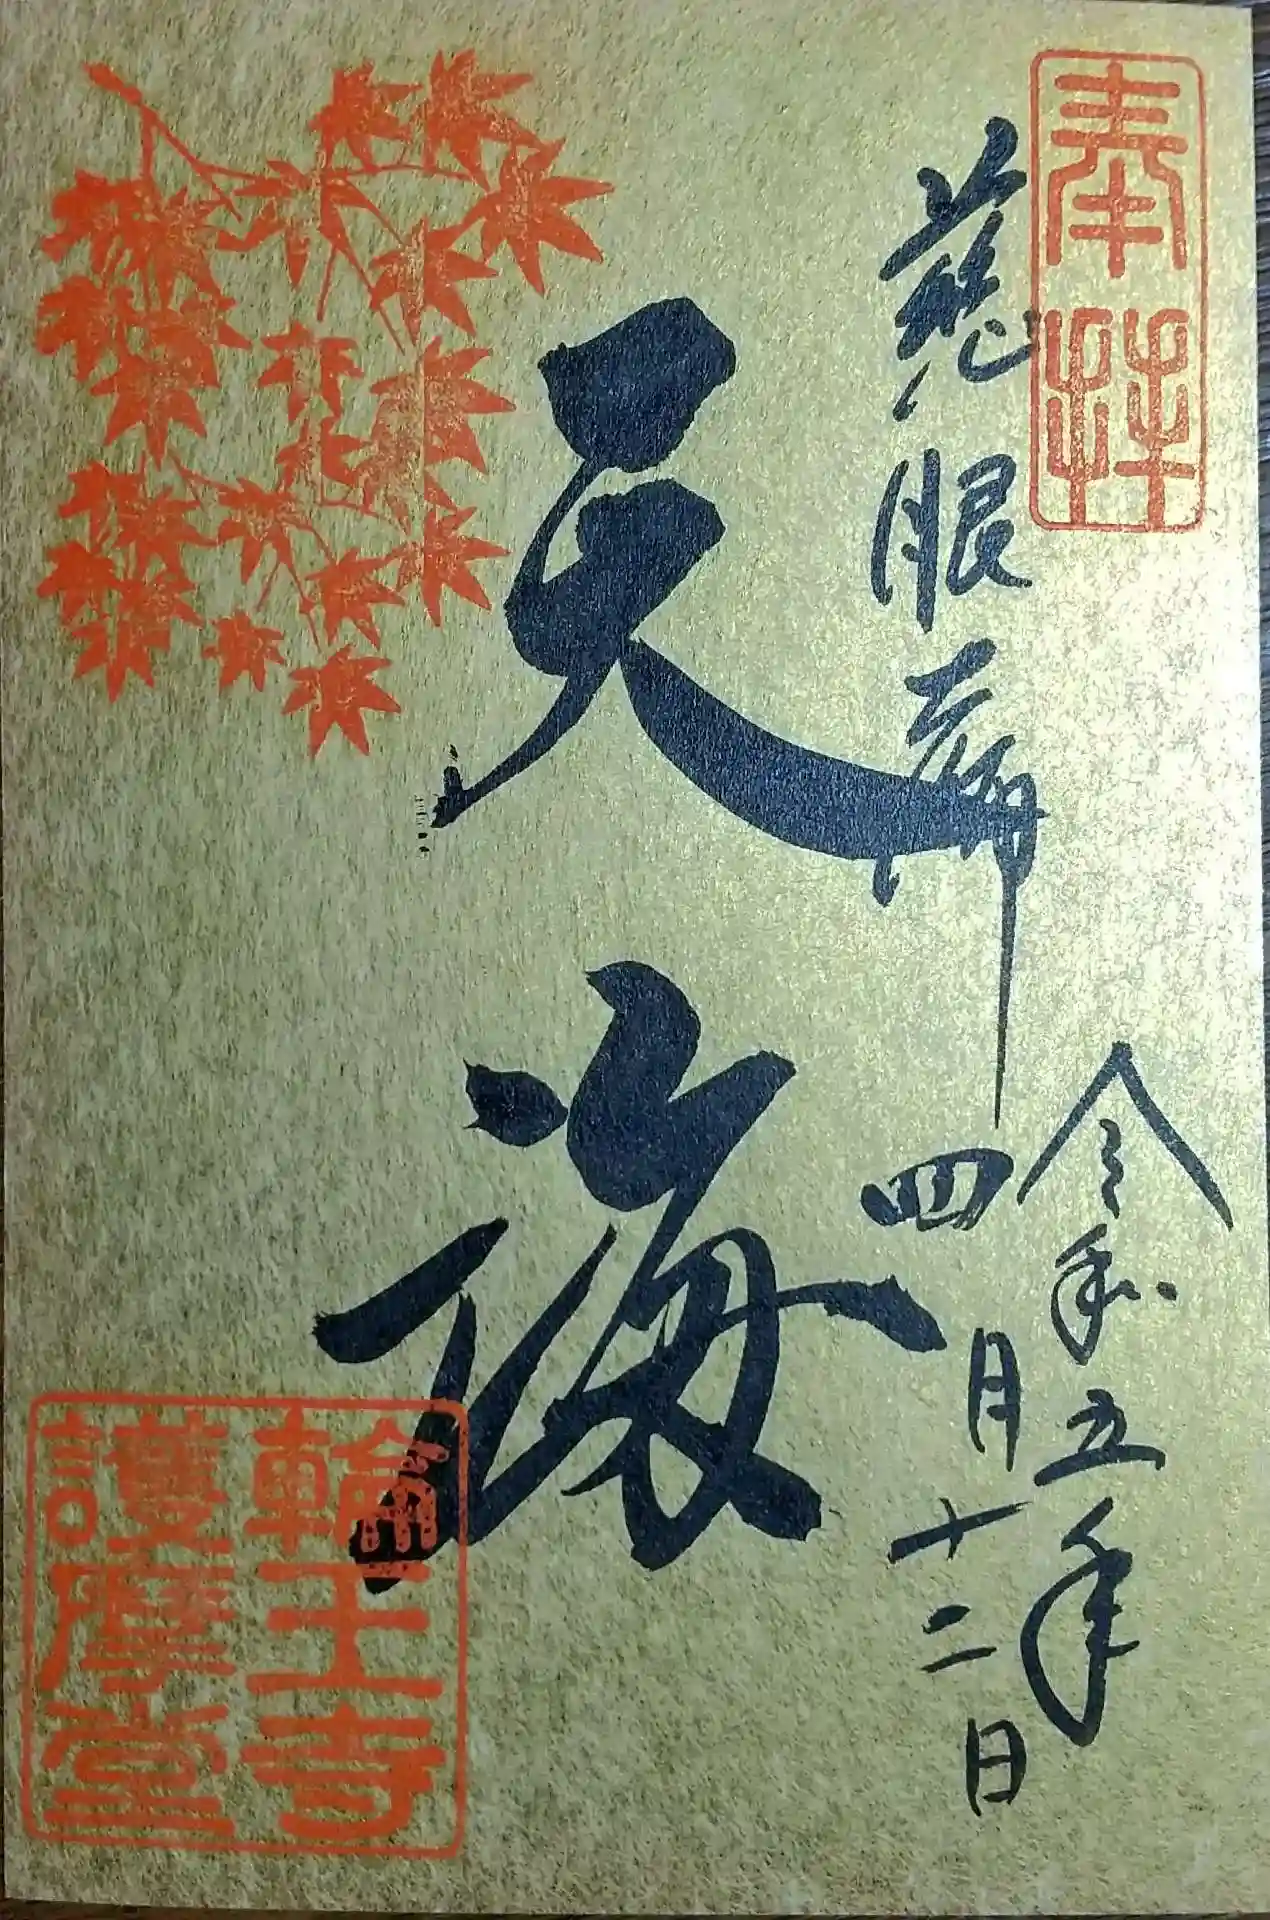 奉拝
慈眼
天海
令和五年
四月十二日
輪王寺
護摩堂